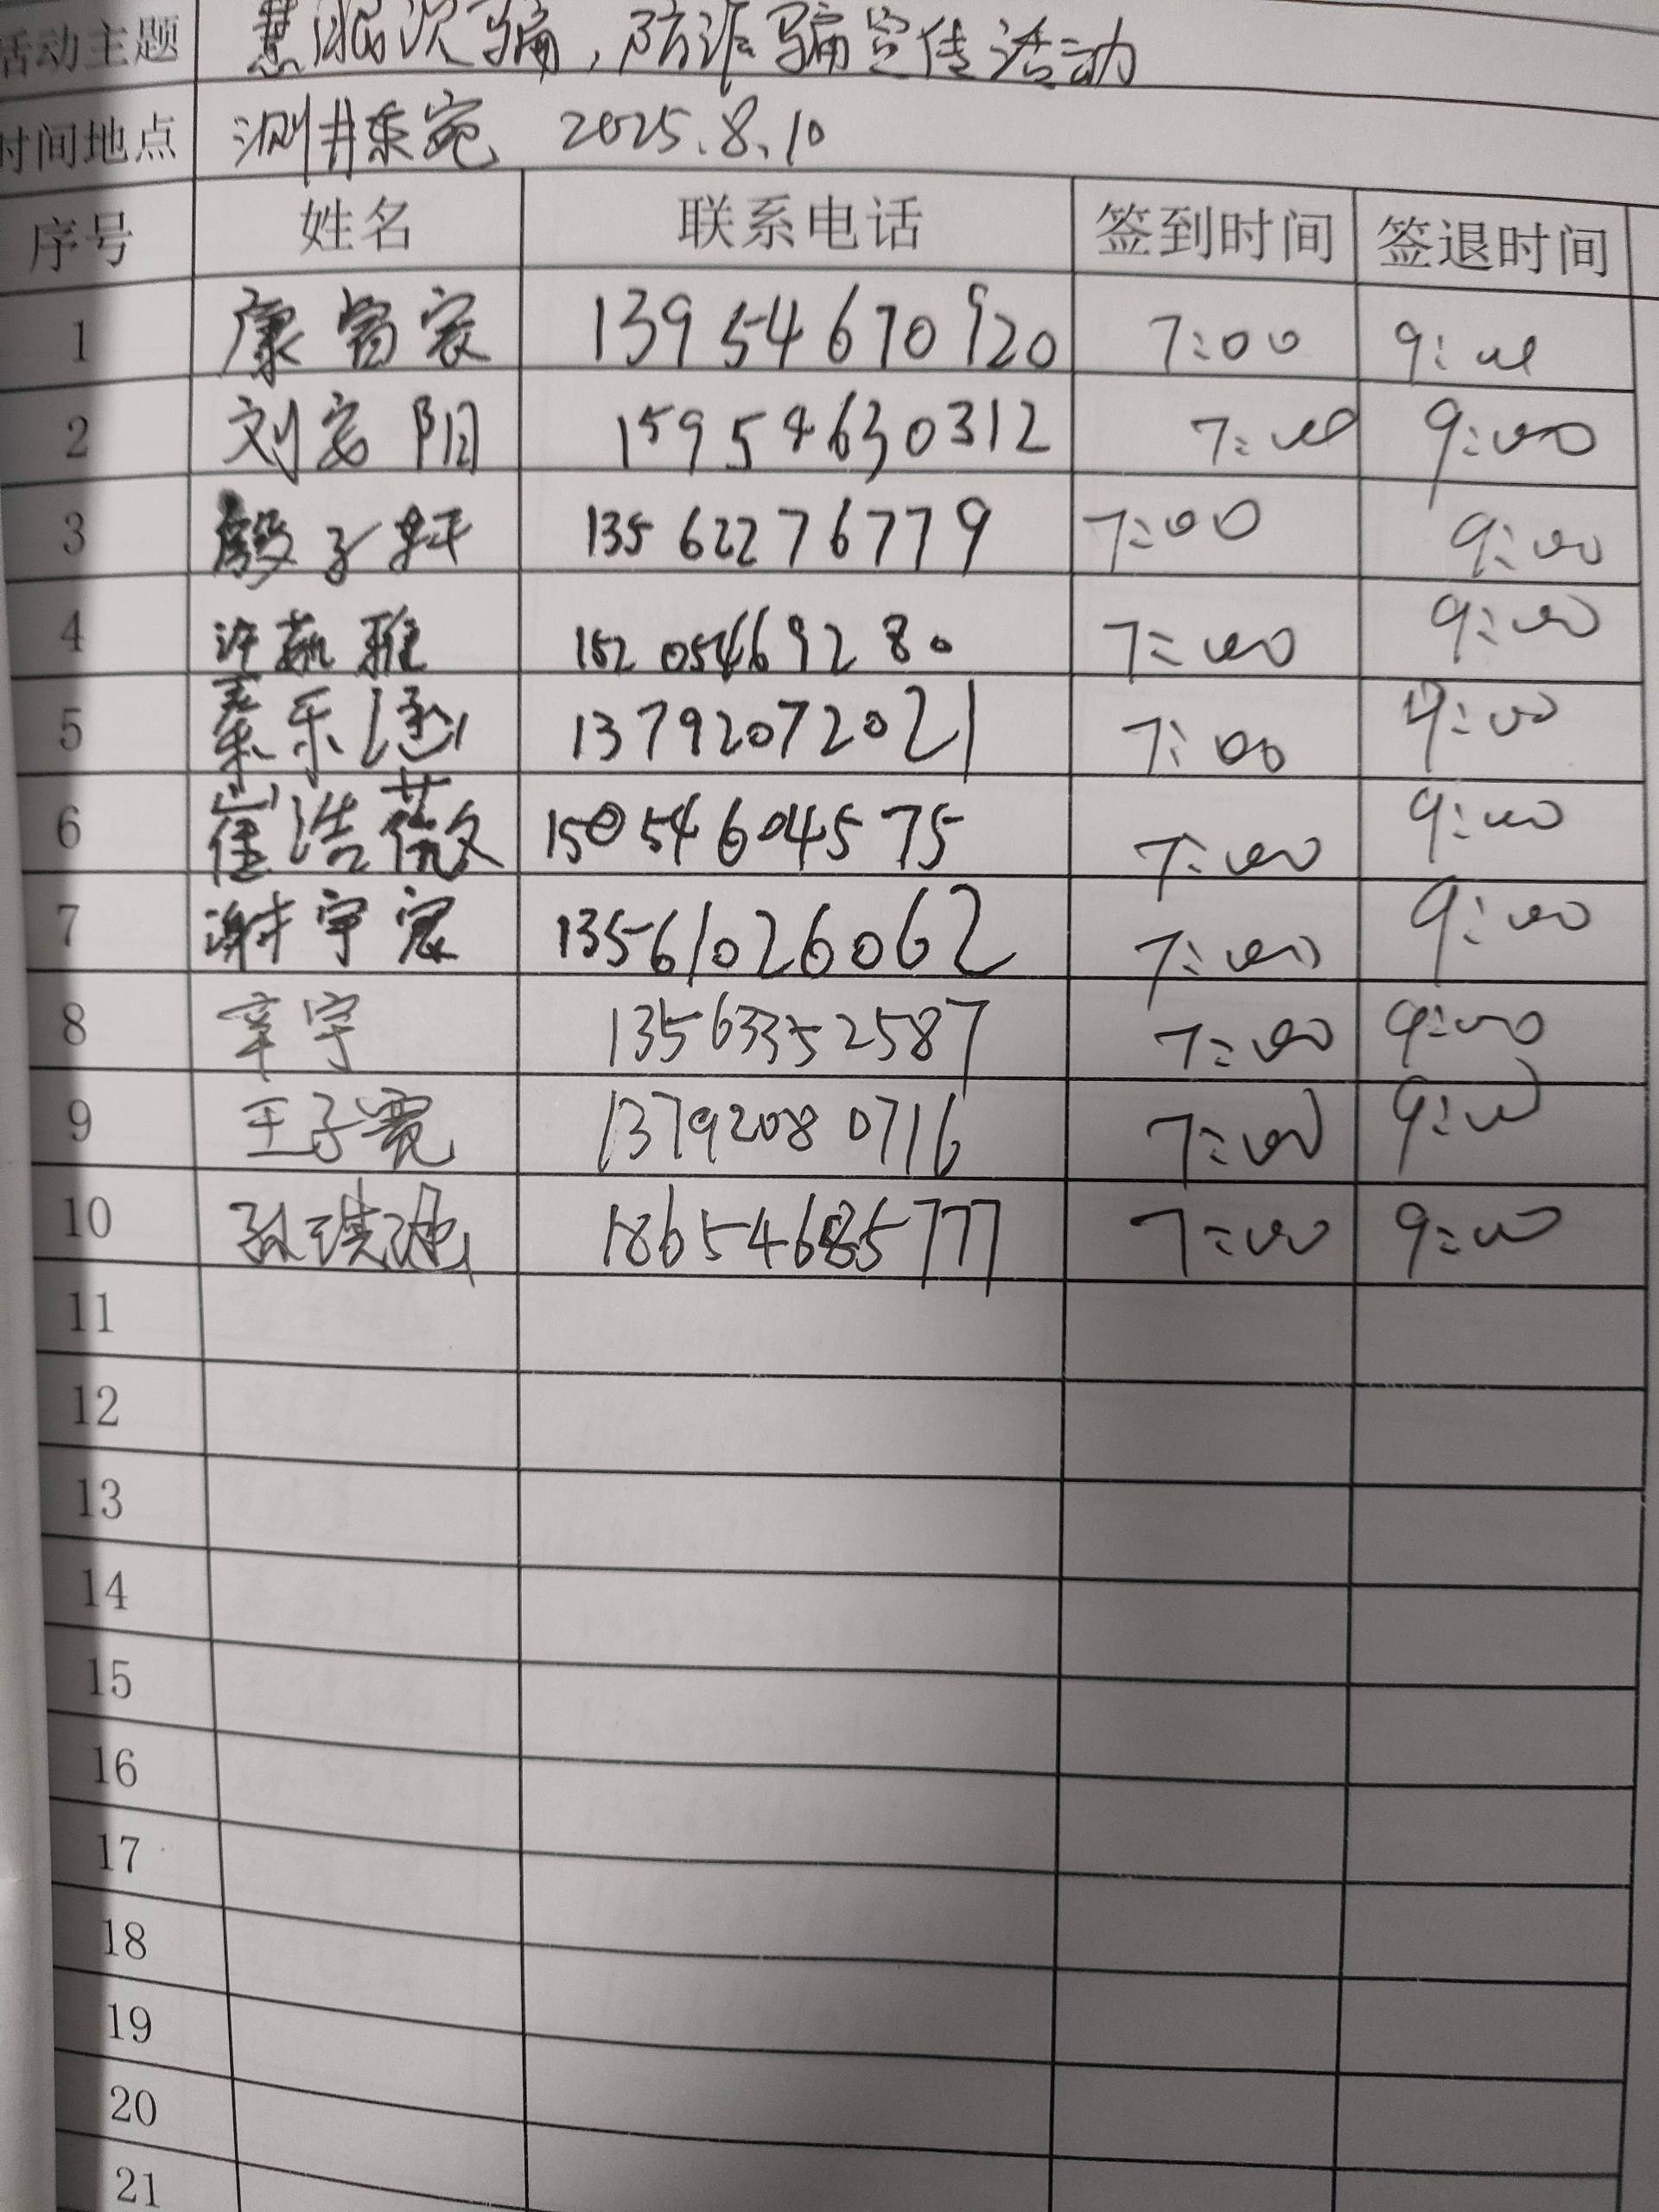 活动主题 慧眼识骗,防诈骗宣传活动
时间地点 测井东宛 2025.8.10
序号 姓名 联系电话 签到时间 签退时间
1 康 家 13954670920 7:00 9:00
2 刘安阳 15954630312 7:00 9:00
3 殷子轩 13562276779 7:00 9:00
4 许 雅 15205469280 7:00 9:00
5 秦乐涵 13792072021 7:00 9:00
6 崔浩薇 15054604575 7:00 9:00
7 谢宇宸 13561026062 7:00 9:00
8 辛宇 13563352587 7:00 9:00
9 王子赛 13792080716 7:00 9:00
10 孙琪 18654685777 7:00 9:00
11
12
13
14
15
16
17
18
19
20
21